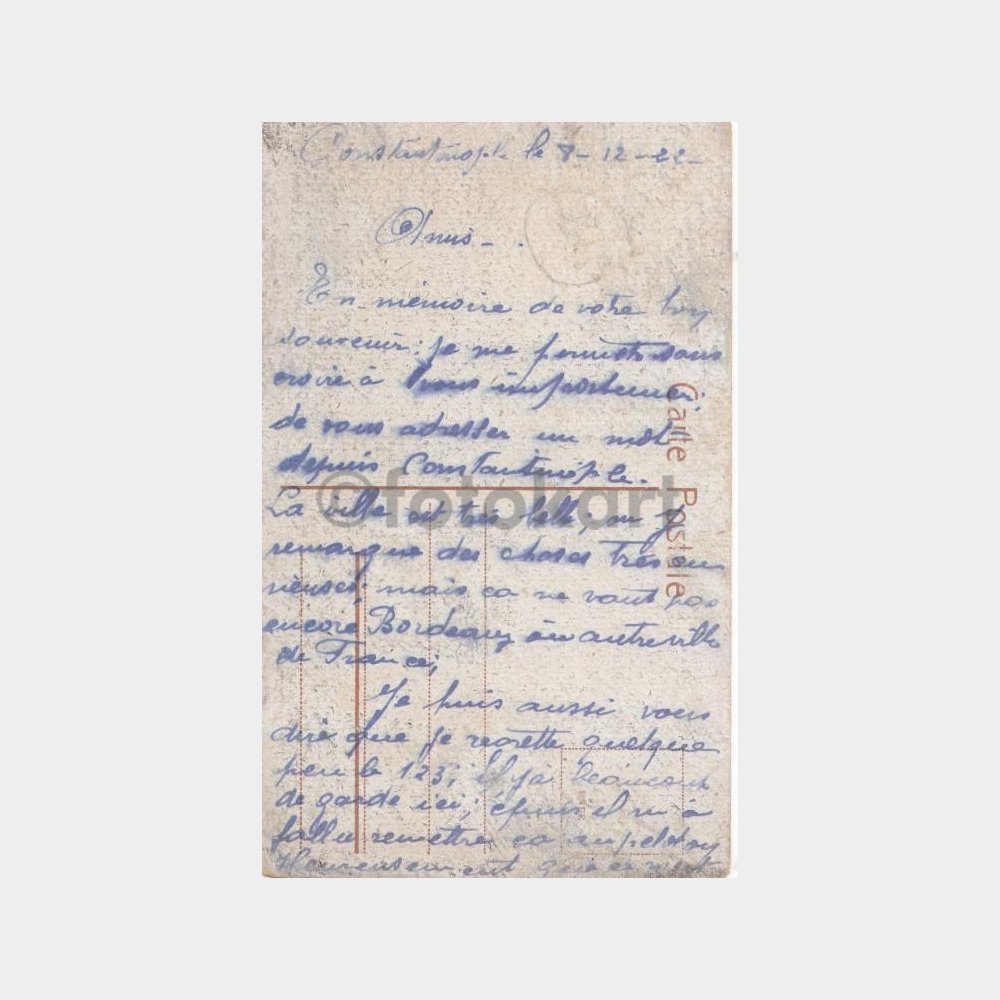 Constantinople le 8-12-22-
Amis - .
En mémoire de votre bon
souvenir; je me permets sans
croire à vous importuner,
de vous adresser un mot
depuis Constantinople.
La ville est très belle, on y
remarque des choses très cu
rieuses; mais ca ne vaut pas
encore Bordeaux ou autre ville
de France;
Je puis aussi vous
dire que je regrette quelque
peu le 123; il y a beaucoup
de garde ici; épuis il m'à
fallu remettre ca au peloton
Heureusement
Carte Postale
©fotokart